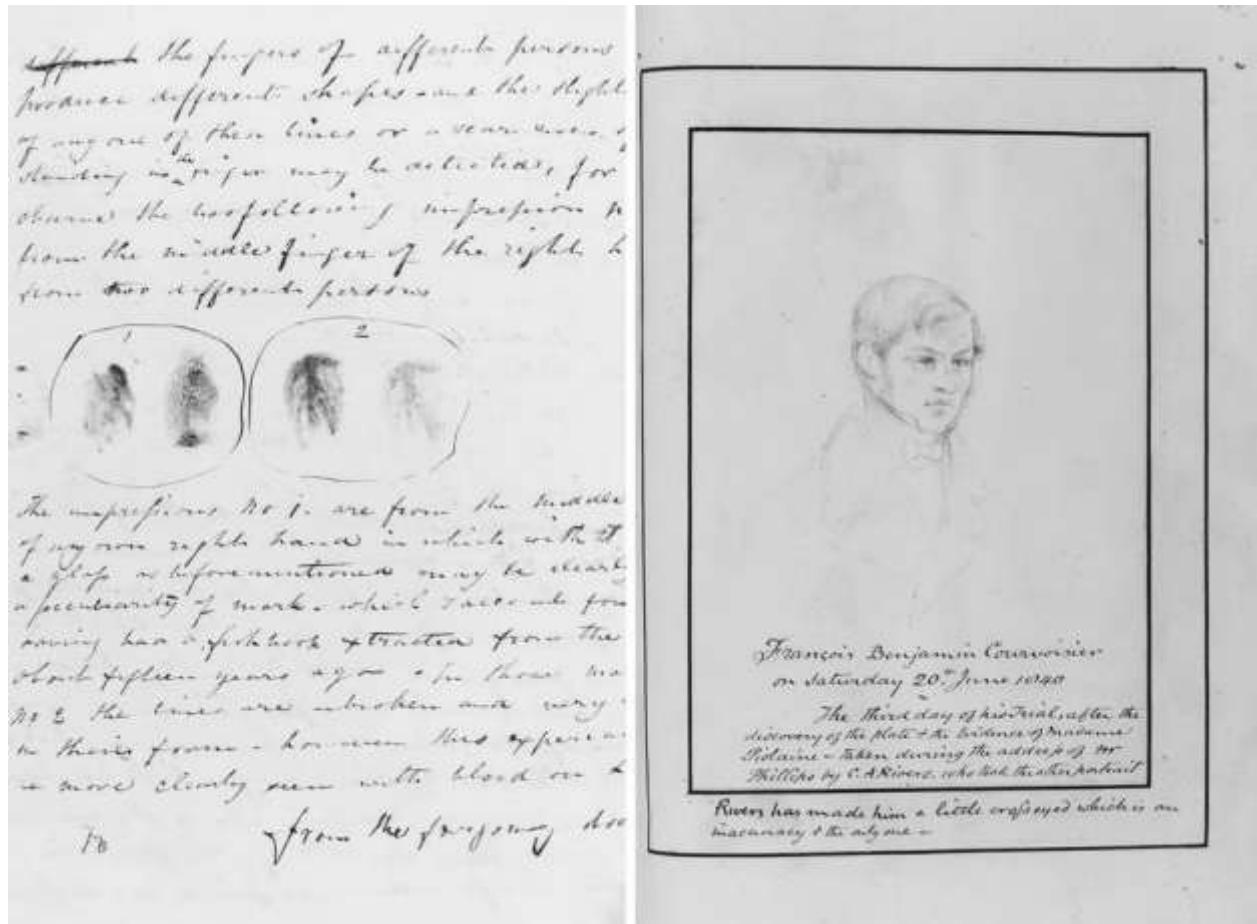 different the fingers of different persons
produce different shapes and the slight
of any one of these lines or a scar even of
standing in the finger may be detected, for
observe the two following impressions
from the middle finger of the right h
from two different persons
1
2
The impressions No 1. are from the middle
of my own right hand in which with
a glass as beforementioned may be clearly
a peculiarity of mark which
having had a fishhook extracted from the
about fifteen years ago In those
No 2 the lines are unbroken and very
in their form however this
is more clearly seen with blood on
from the foregoing
François Benjamin Courvoisier
on Saturday 20th June 1840
The third day of his Trial, after the
discovery of the plate & the evidence of Madame
Piolaine taken during the address of Mr
Phillips by C. A. Rivers, who took the other portrait
Rivers has made him a little crosseyed which is an
inaccuracy & the only one